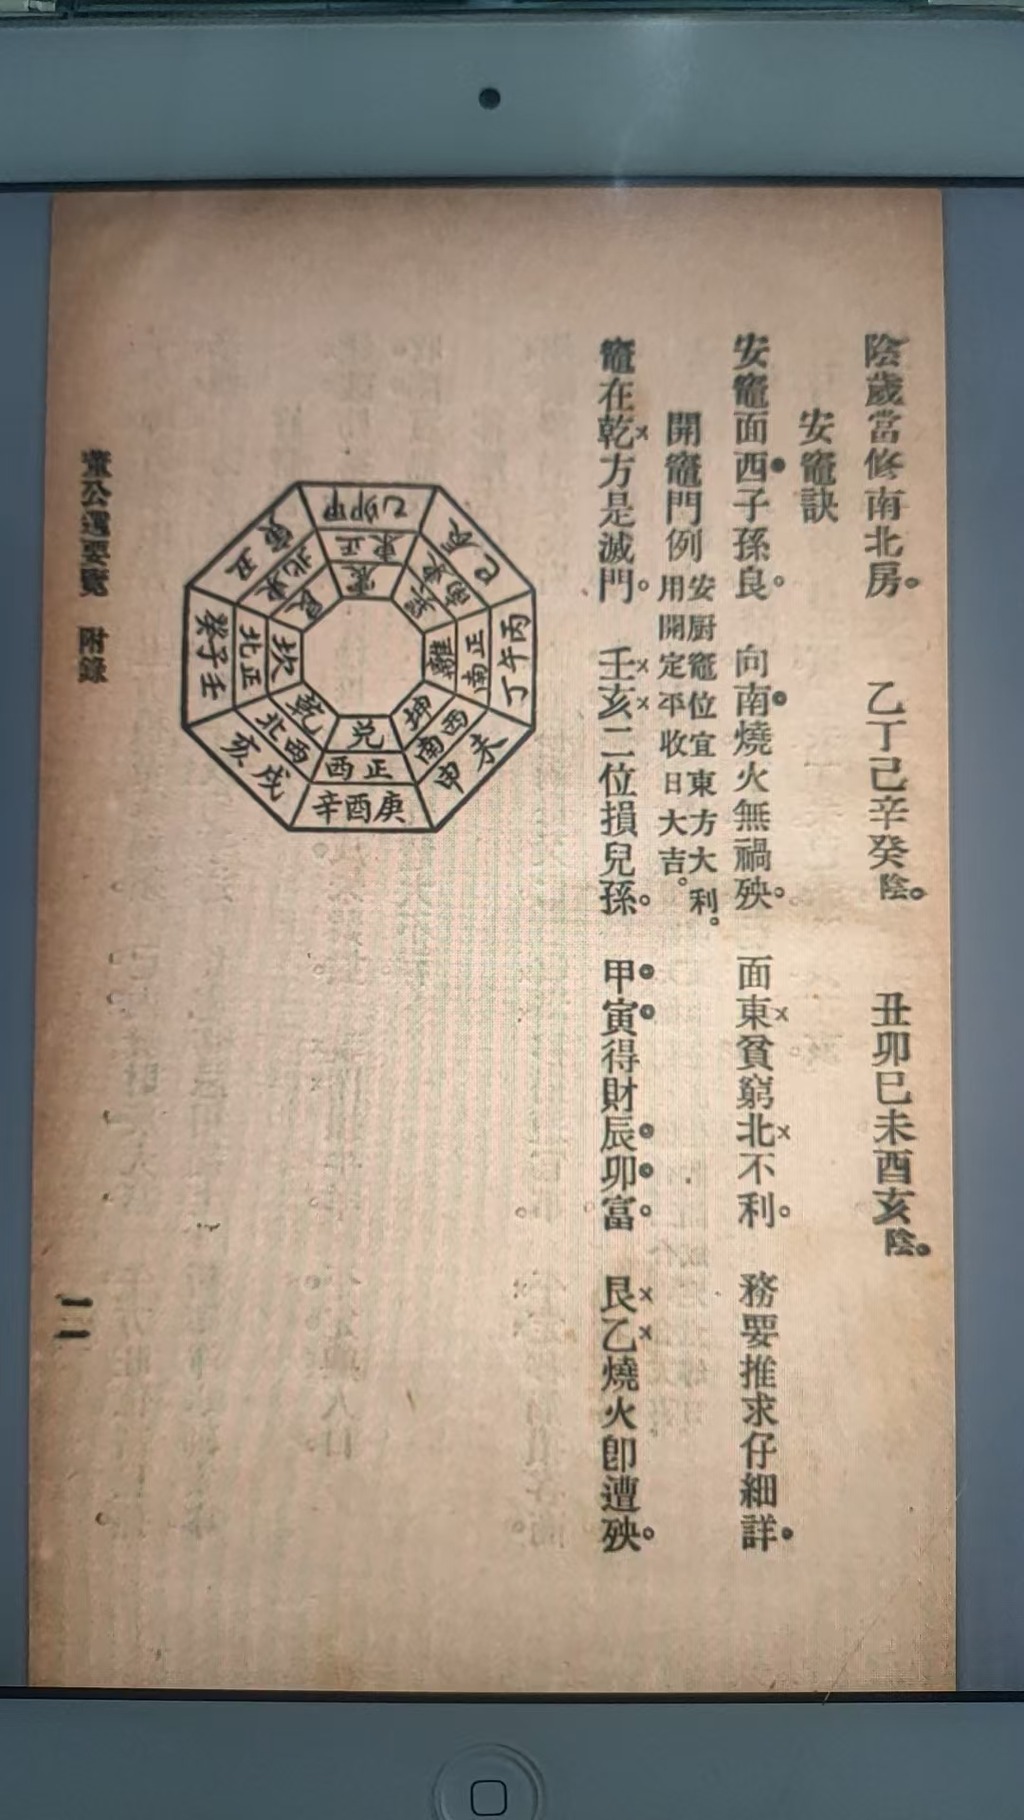 陰歲當修南北房。 乙丁己辛癸陰。 丑卯巳未酉亥陰。
安竈訣
安竈面西子孫良。 向南燒火無禍殃。 面東貧窮北不利。 務要推求仔細詳。
開竈門例
安厨竈位宜東方大利。
用開定平收日大吉。
竈在乾方是滅門。 壬亥二位損兒孫。 甲寅得財辰卯富。 艮乙燒火卽遭殃。
甲卯乙
正東
震
辰巳
東南
巽
丙午丁
正南
離
未申
西南
坤
庚酉辛
正西
兌
戌亥
西北
乾
壬子癸
正北
坎
丑寅
東北
艮
董公選要覽 附錄
一一